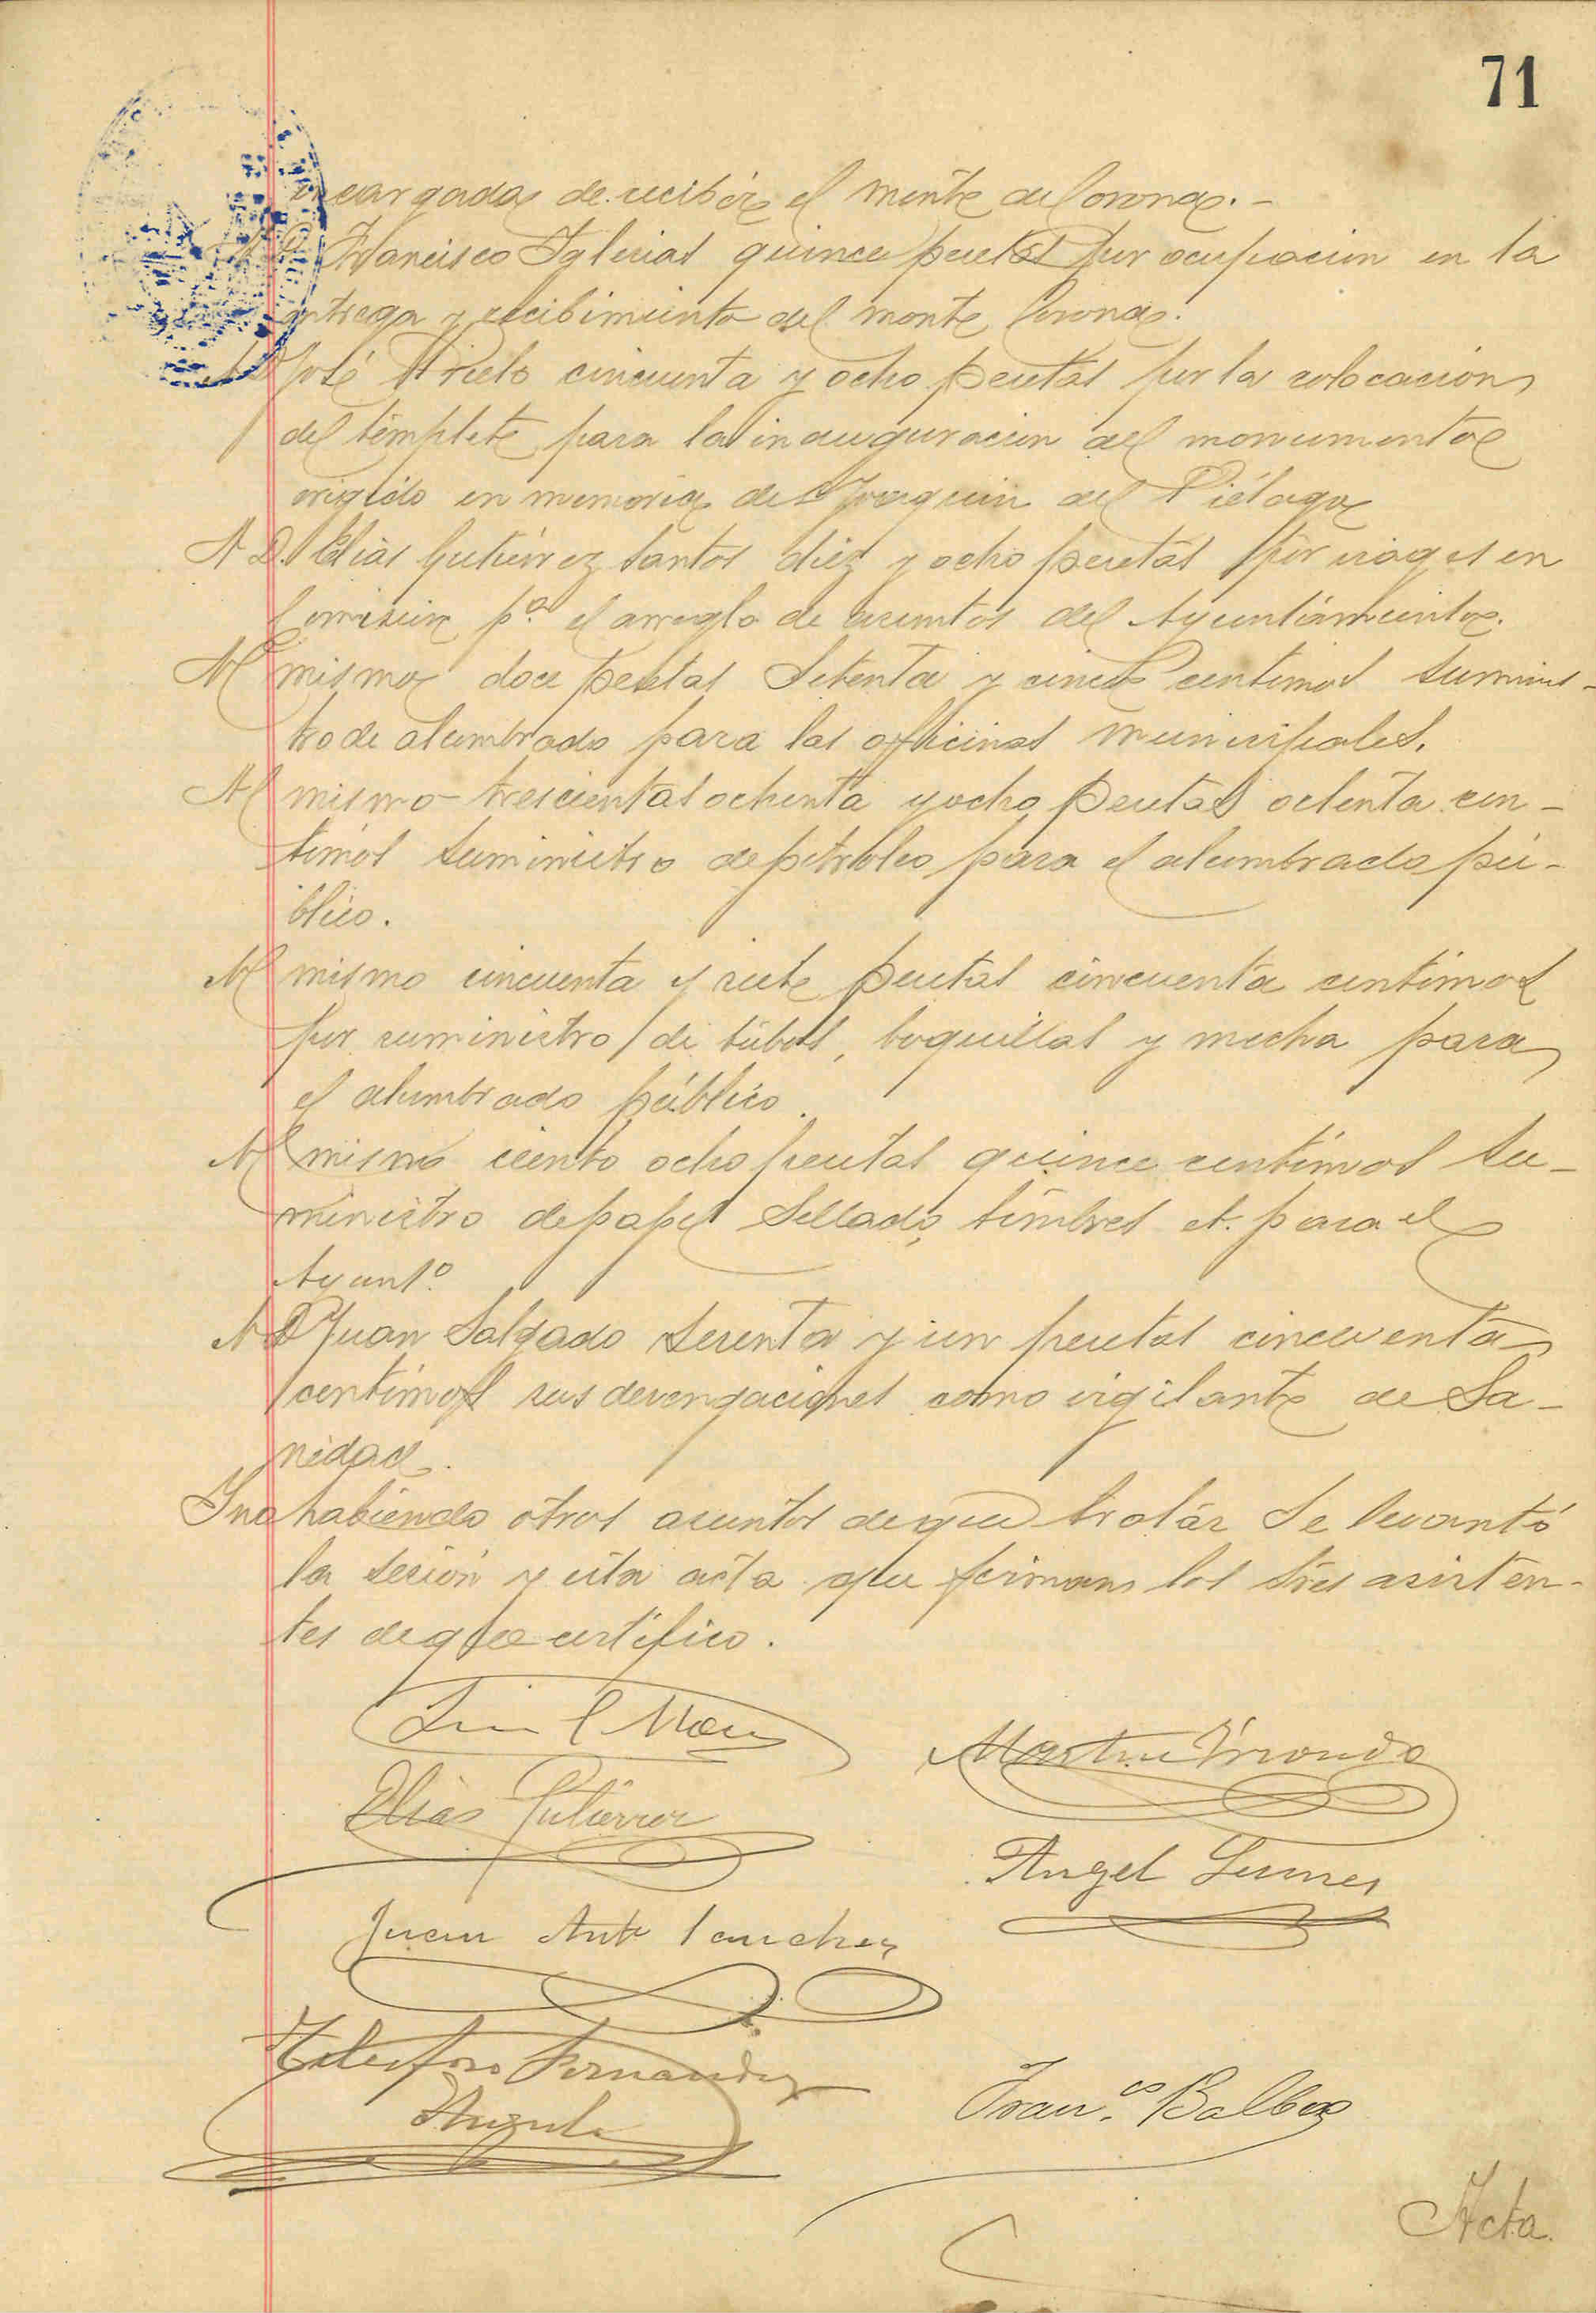 71
encargadas de recibir el monte de Corona.-
A D. Francisco Iglesias quince pesetas por ocupacion en la
entrega y recibimiento del monte Corona.
A D José Prieto cincuenta y ocho pesetas por la colocacion
del templete para la inauguracion del monumento
erigido en memoria de Joaquin del Piélago
A D. Elías Gutiérrez Santos diez y ocho pesetas por viages en
Comision pª el arreglo de asuntos del Ayuntamiento.
Al mismo doce pesetas setenta y cinco centimos suminis-
tro de alumbrado para las oficinas municipales.
Al mismo trescientas ochenta y ocho pesetas ochenta cen-
timos suministro de petroleo para el alumbrado pú-
blico.
Al mismo cincuenta y siete pesetas cincuenta centimos
por suministro de tubos, boquillas y mecha para
el alumbrado público.
Al mismo ciento ocho pesetas quince centimos su-
ministro de papel sellado, timbres et. para el
Ayuntº
A D Juan Salgado sesenta y un pesetas cincuenta
centimos sus devengaciones como vigilante de Sa-
nidad.
Y no habiendo otros asuntos de que tratar se levantó
la sesión y esta acta que firman los Sres asisten-
tes de que certifico.
Martin Yriondo
Elías Gutierrez
Angel
Juan Antº Sanchez
Telesforo Fernandez
Angulo
Franco Balbas
Acta